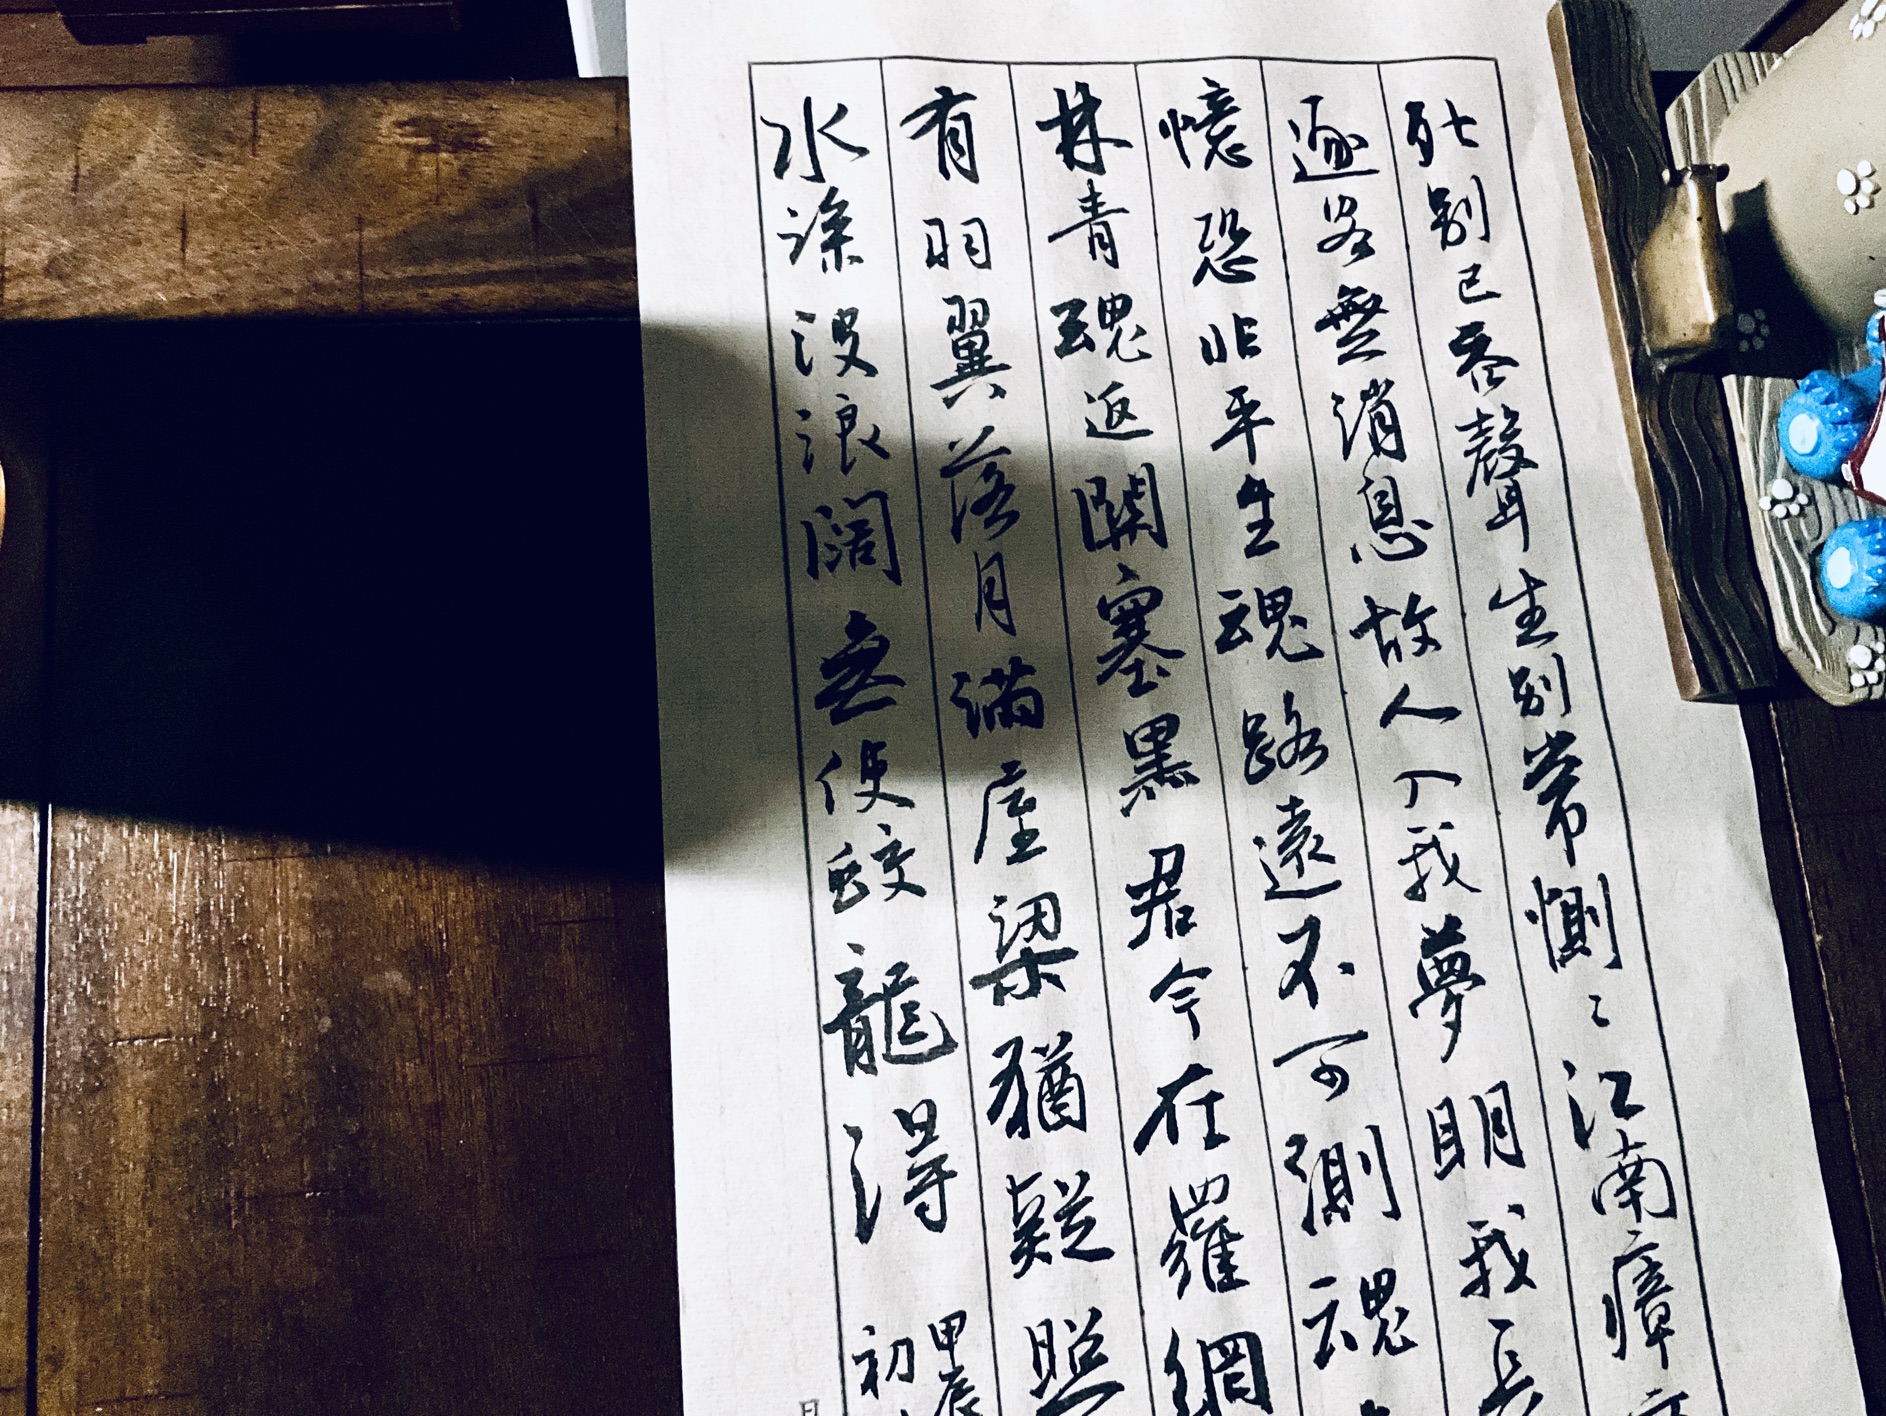 死別已吞聲生別常惻〻江南瘴
逐客無消息故人入我夢明我長
憶恐非平生魂路遠不可測魂
林青魂返關塞黑君今在羅網
有羽翼落月滿屋梁猶疑照
水深波浪闊無使蛟龍得
甲辰
初